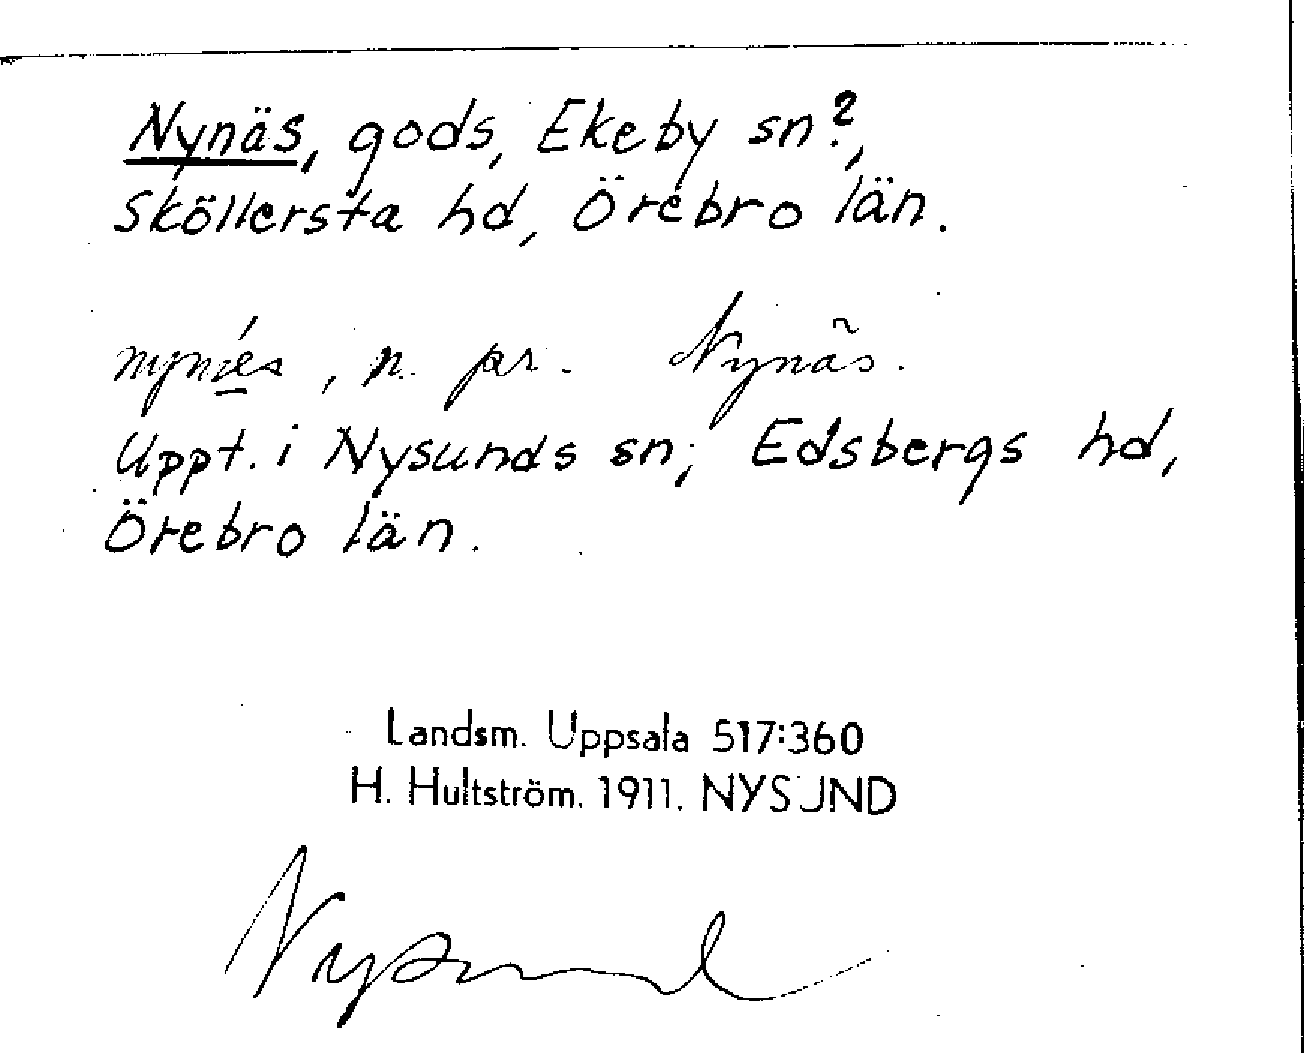 Nynäs, gods, Ekeby sn?,
Sköllersta hd, Örebro län.
nynés, n. pr. Nynäs.
Uppt. i Nysunds sn, Edsbergs hd,
Örebro län.
Landsm. Uppsala 517:360
H. Hultström. 1911. NYSUND
Nysund